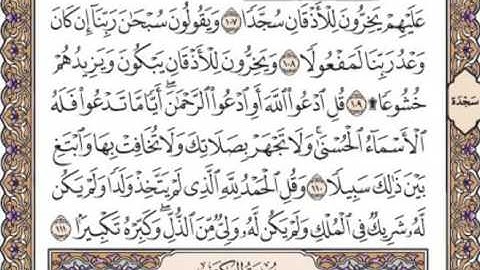 عَلَيْهِمْ يَخِرُّونَ لِلْأَذْقَانِ سُجَّدًا ١٠٧ وَيَقُولُونَ سُبْحَٰنَ رَبِّنَآ إِن كَانَ
وَعْدُ رَبِّنَا لَمَفْعُولًا ١٠٨ وَيَخِرُّونَ لِلْأَذْقَانِ يَبْكُونَ وَيَزِيدُهُمْ
خُشُوعًا ۩ ١٠٩ قُلِ ٱدْعُوا۟ ٱللَّهَ أَوِ ٱدْعُوا۟ ٱلرَّحْمَٰنَ ۖ أَيًّا مَّا تَدْعُوا۟ فَلَهُ
سَجْدَة
ٱلْأَسْمَآءُ ٱلْحُسْنَىٰ ۚ وَلَا تَجْهَرْ بِصَلَاتِكَ وَلَا تُخَافِتْ بِهَا وَٱبْتَغِ
بَيْنَ ذَٰلِكَ سَبِيلًا ١١٠ وَقُلِ ٱلْحَمْدُ لِلَّهِ ٱلَّذِى لَمْ يَتَّخِذْ وَلَدًا وَلَمْ يَكُن
لَّهُۥ شَرِيكٌ فِى ٱلْمُلْكِ وَلَمْ يَكُن لَّهُۥ وَلِىٌّ مِّنَ ٱلذُّلِّ ۖ وَكَبِّرْهُ تَكْبِيرًۢا ١١١